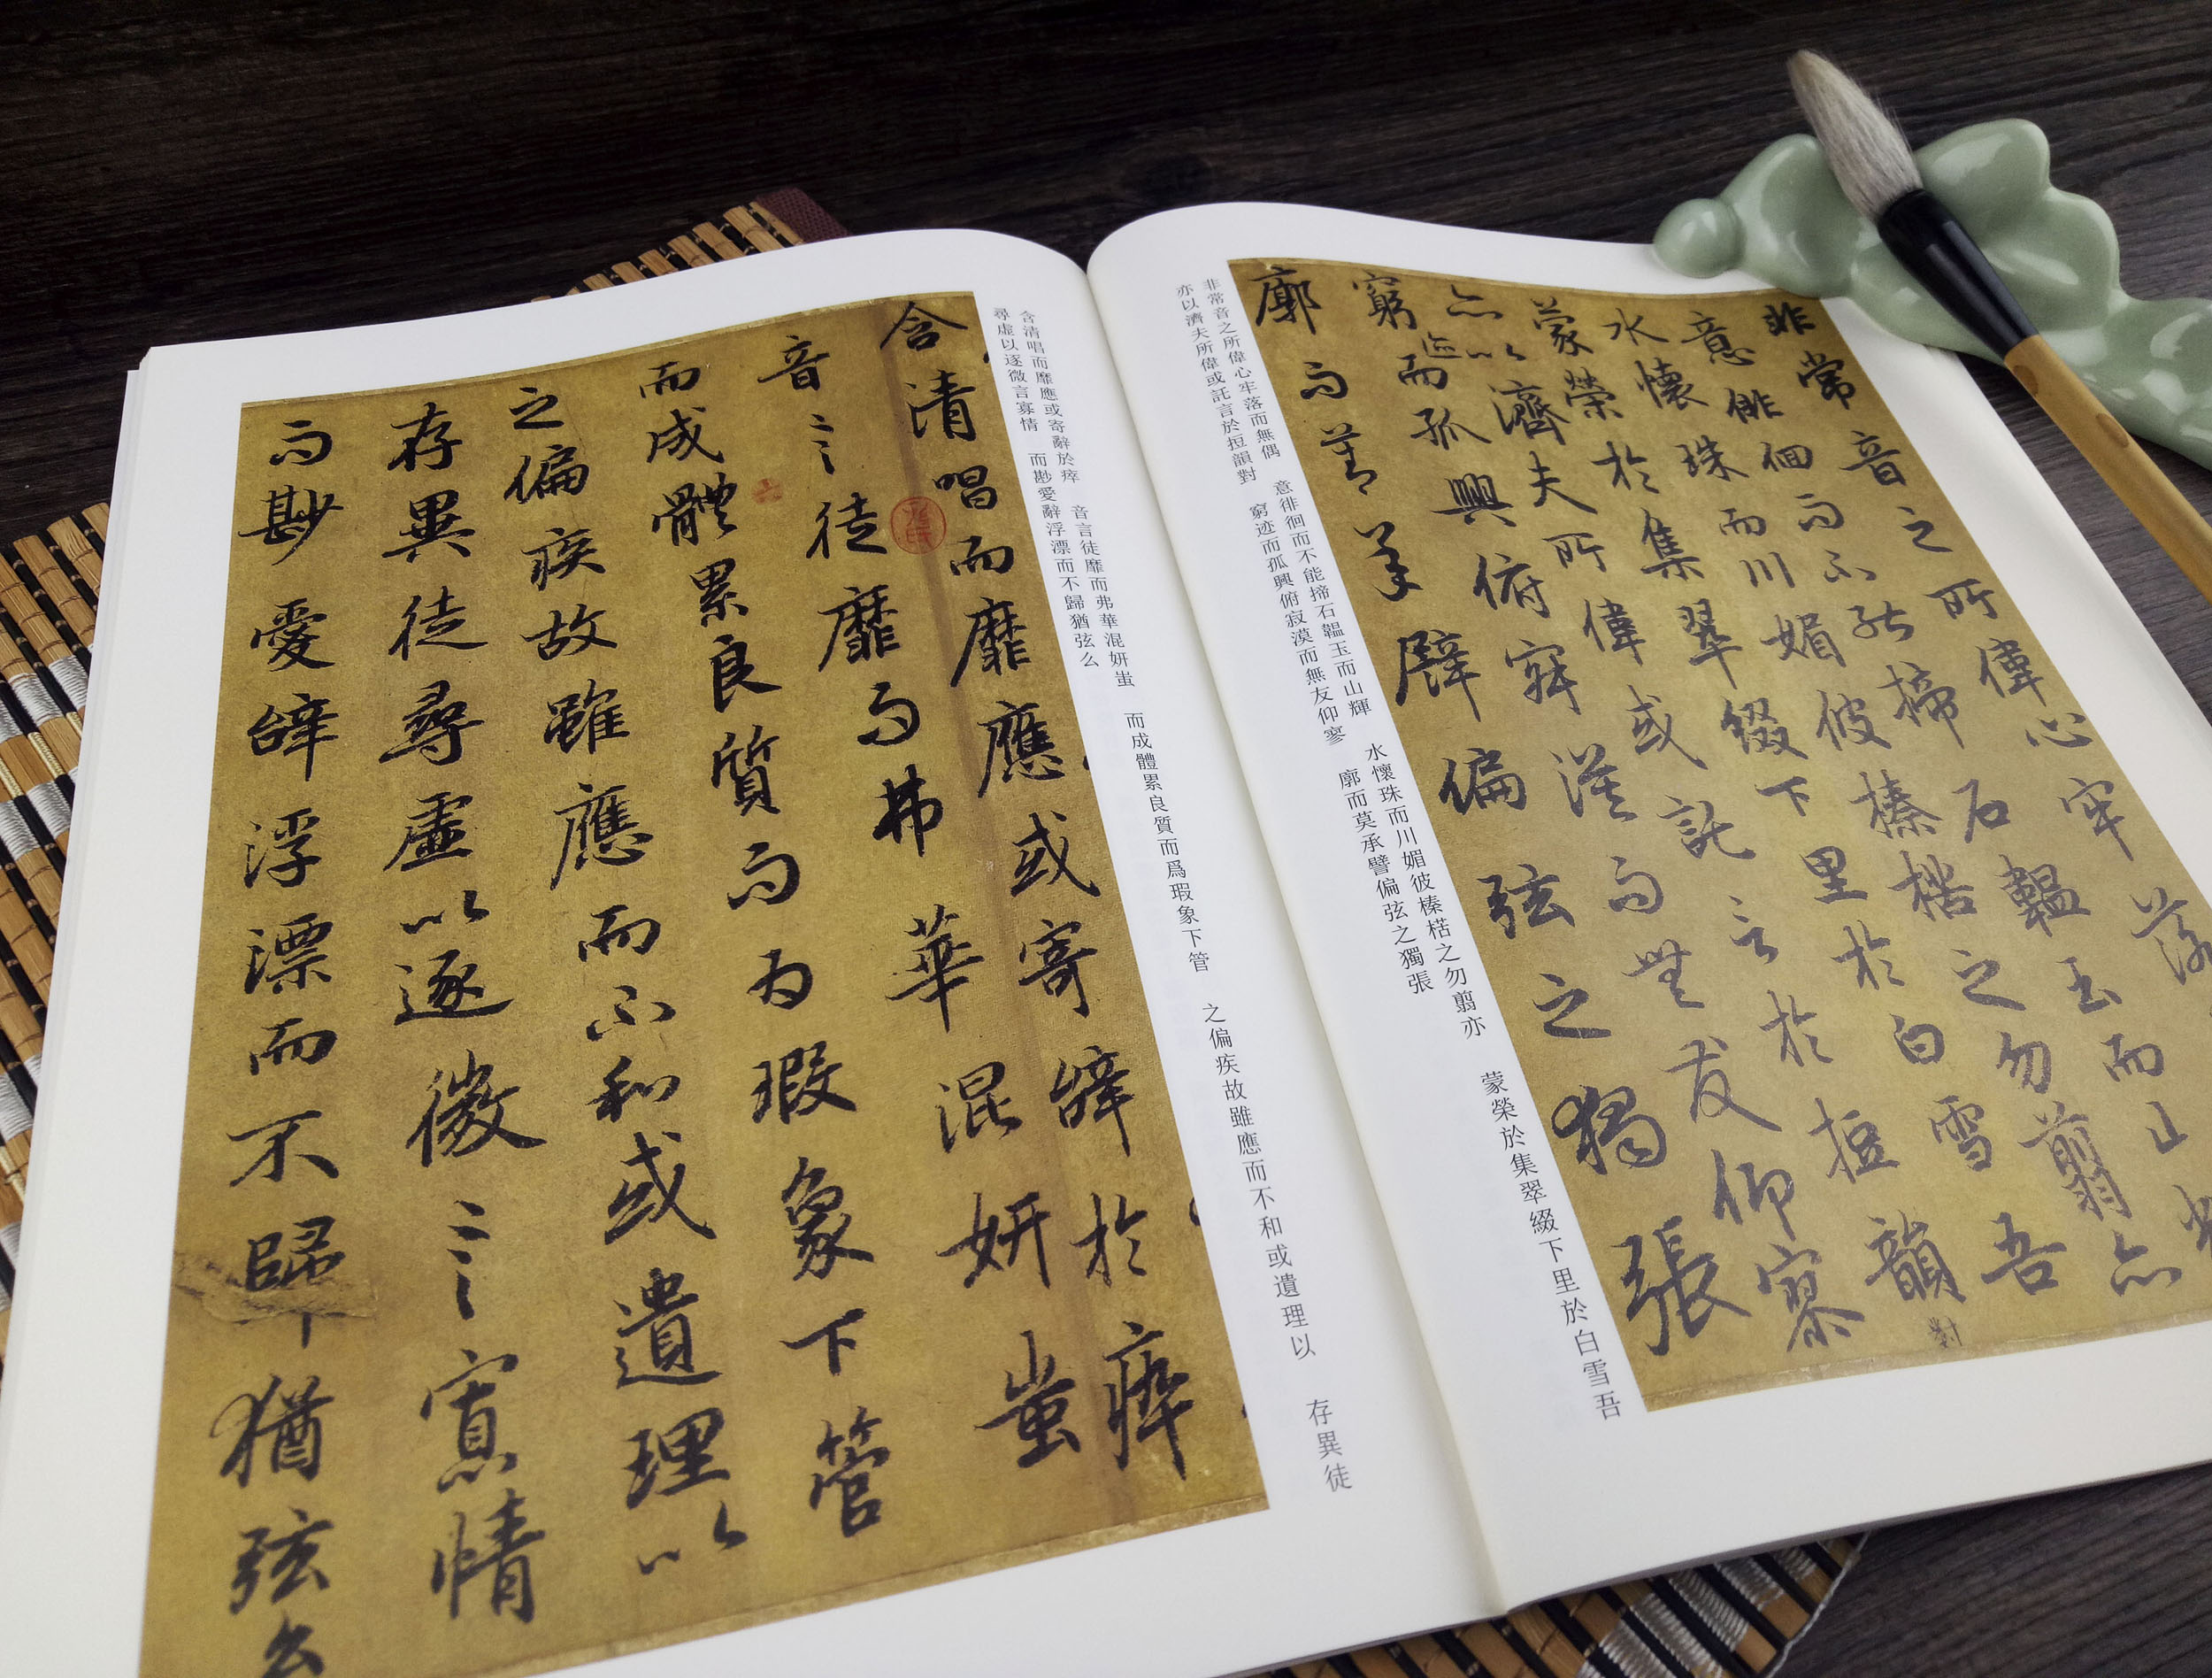 非常音之所偉心牢落
意俳佪而不能揥石韞玉而山
水懷珠而川媚彼榛楛之勿翦亦
蒙榮於集翠綴下里於白雪吾
亦以濟夫所偉或託言於短韻對
窮迹而孤興俯寂漠而無友仰寥
廓而莫承譬偏弦之獨張
非常音之所偉心牢落而無偶　意徘徊而不能揥石韞玉而山輝　水懷珠而川媚彼榛楛之勿翦亦　蒙榮於集翠綴下里於白雪吾
亦以濟夫所偉或託言於短韻對　窮迹而孤興俯寂漠而無友仰寥　廓而莫承譬偏弦之獨張
含清唱而靡應或寄辭於瘁
音言徒靡而弗華混妍蚩
而成體累良質而為瑕象下管
之偏疾故雖應而不和或遺理以
存異徒尋虛以逐微言寡情
而尠愛辭浮漂而不歸猶弦么
含清唱而靡應或寄辭於瘁　音言徒靡而弗華混妍蚩　而成體累良質而爲瑕象下管　之偏疾故雖應而不和或遺理以　存異徒
尋虛以逐微言寡情　而尠愛辭浮漂而不歸猶弦么